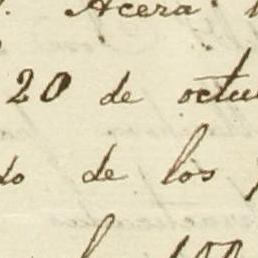 Acera
20 de octu
do de los